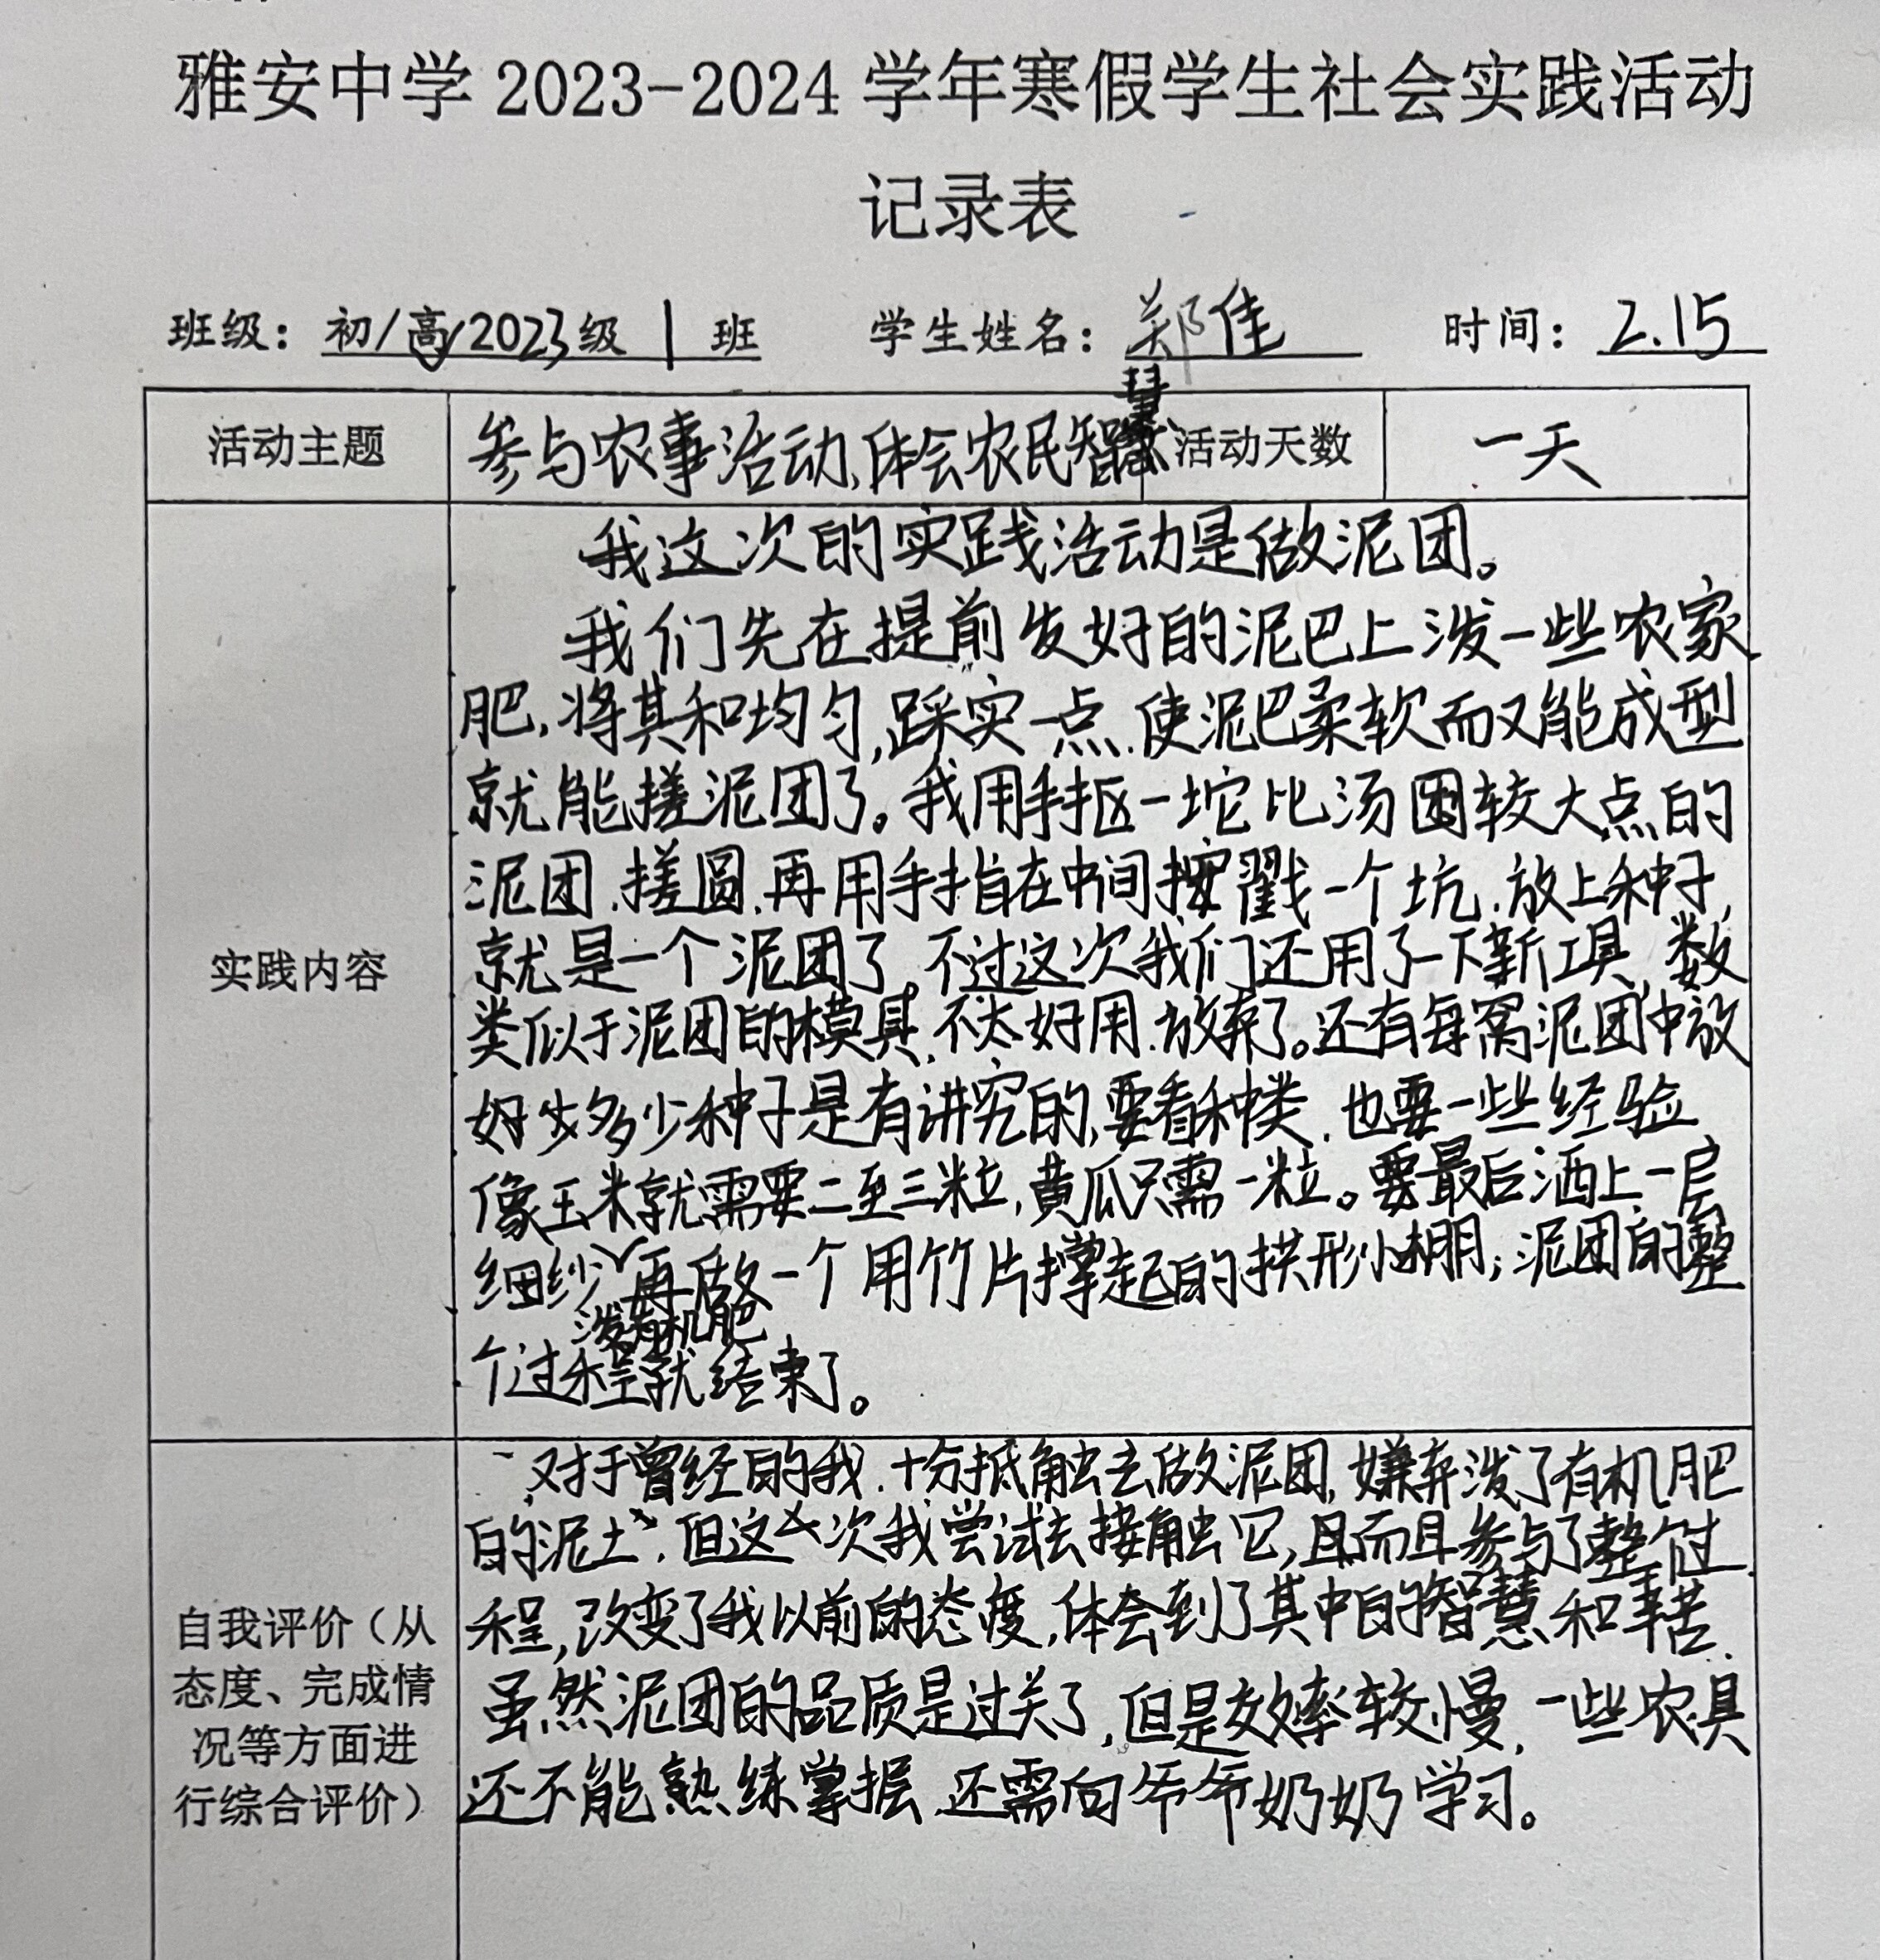 雅安中学 2023-2024 学年寒假学生社会实践活动
记录表
班级：初/高2023级 1 班 学生姓名：郑佳 时间：2.15
活动主题 参与农事活动、体会农民智慧 活动天数 一天
实践内容
我这次的实践活动是做泥团。
我们先在提前发好的泥巴上泼一些农家
肥，将其和均匀，踩实一点，使泥巴柔软而又能成型
就能搓泥团了。我用手抠一坨比汤圆较大点的
泥团，搓圆，再用手指在中间戳一个坑，放上种子，
就是一个泥团了。不过这次我们还用了一下新工具，
类似于泥团的模具，不太好用，放弃了。还有每窝泥团中放
多少种子是有讲究的，要看种类，也要一些经验
像玉米就需要二至三粒，黄瓜只需一粒。最后洒上一层
细纱，再做一个用竹片撑起的拱形小棚；泥团的整
泼有机肥
个过程就结束了。
自我评价（从
态度、完成情
况等方面进
行综合评价）
对于曾经的我，十分抵触去做泥团，嫌弃泼了有机肥
的泥土，但这一次我尝试去接触它，而且参与了整个过
程，改变了我以前的态度，体会到了其中的智慧和辛苦。
虽然泥团的品质是过关了，但是效率较慢，一些农具
还不能熟练掌握，还需向爷爷奶奶学习。